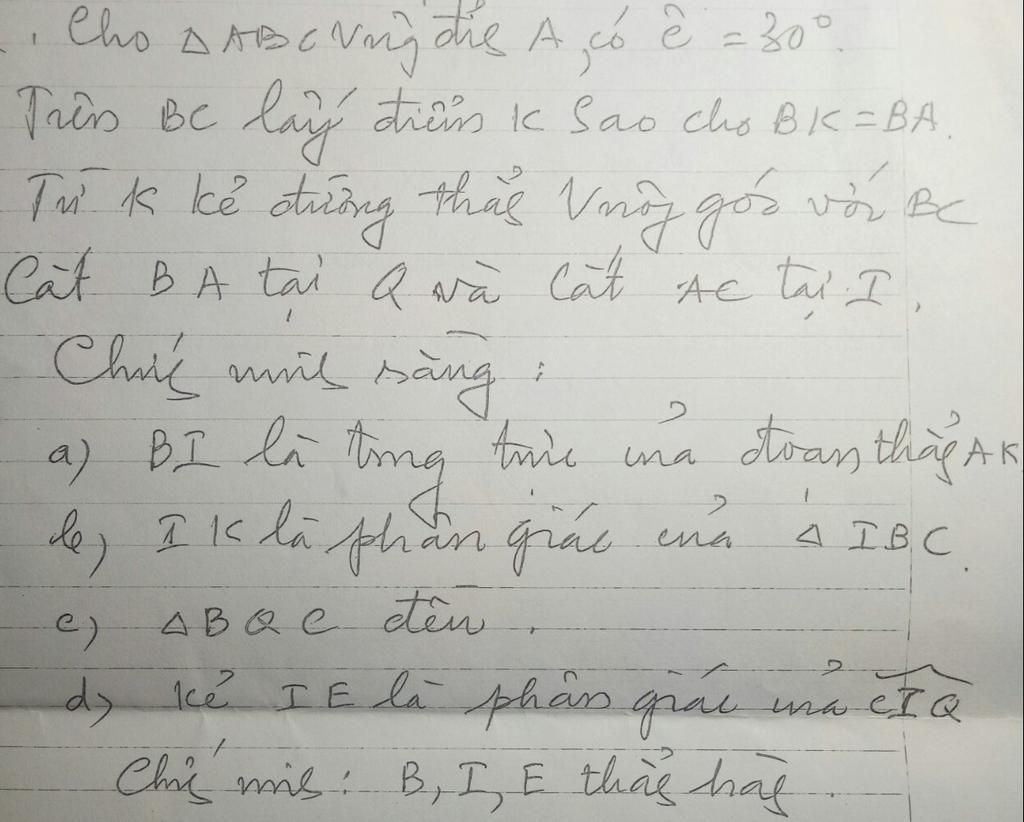 Cho △ ABC vuông đỉnh A, có Ĉ = 30°.
Trên BC lấy điểm K sao cho BK = BA.
Từ K kẻ đường thẳng vuông góc với BC
Cắt BA tại Q và cắt AC tại I.
Chứng minh rằng:
a) BI là trung trực của đoạn thẳng AK
b) IK là phân giác của △ IBC.
c) △ BQC đều.
d) Kẻ IE là phân giác của CIQ
Chứng minh: B, I, E thẳng hàng.